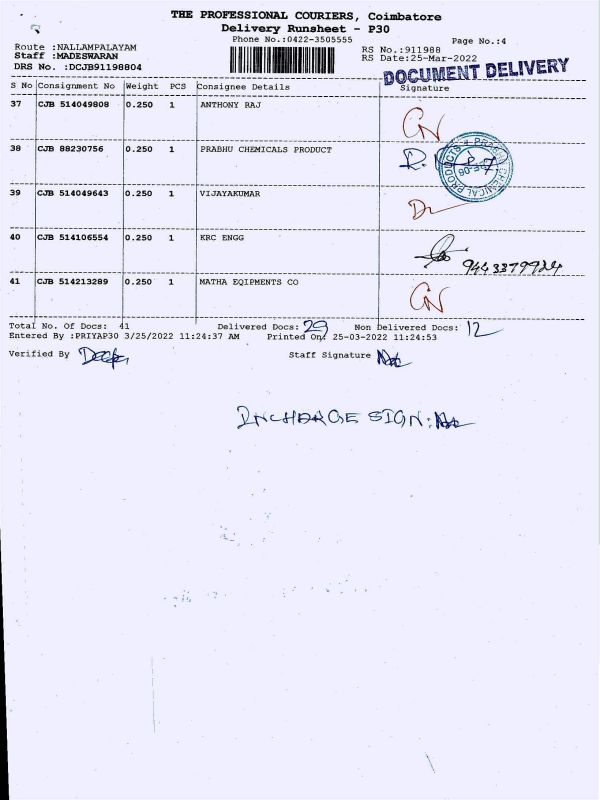 THE PROFESSIONAL COURIERS, Coimbatore
Delivery Runsheet - P30
Phone No.:0422-3505555
Page No.:4
Route :NALLAMPALAYAM
RS No.:911988
Staff :MADESWARAN
RS Date:25-Mar-2022
DRS No. :DCJB91198804
DOCUMENT DELIVERY
S No Consignment No Weight PCS Consignee Details Signature
37 CJB 514049808 0.250 1 ANTHONY RAJ
38 CJB 88230756 0.250 1 PRABHU CHEMICALS PRODUCT
39 CJB 514049643 0.250 1 VIJAYAKUMAR
40 CJB 514106554 0.250 1 KRC ENGG
9443379924
41 CJB 514213289 0.250 1 MATHA EQIPMENTS CO
Total No. Of Docs: 41 Delivered Docs: 29 Non Delivered Docs: 12
Entered By :PRIYAP30 3/25/2022 11:24:37 AM Printed On: 25-03-2022 11:24:53
Verified By Staff Signature
INCHARGE SIGN: